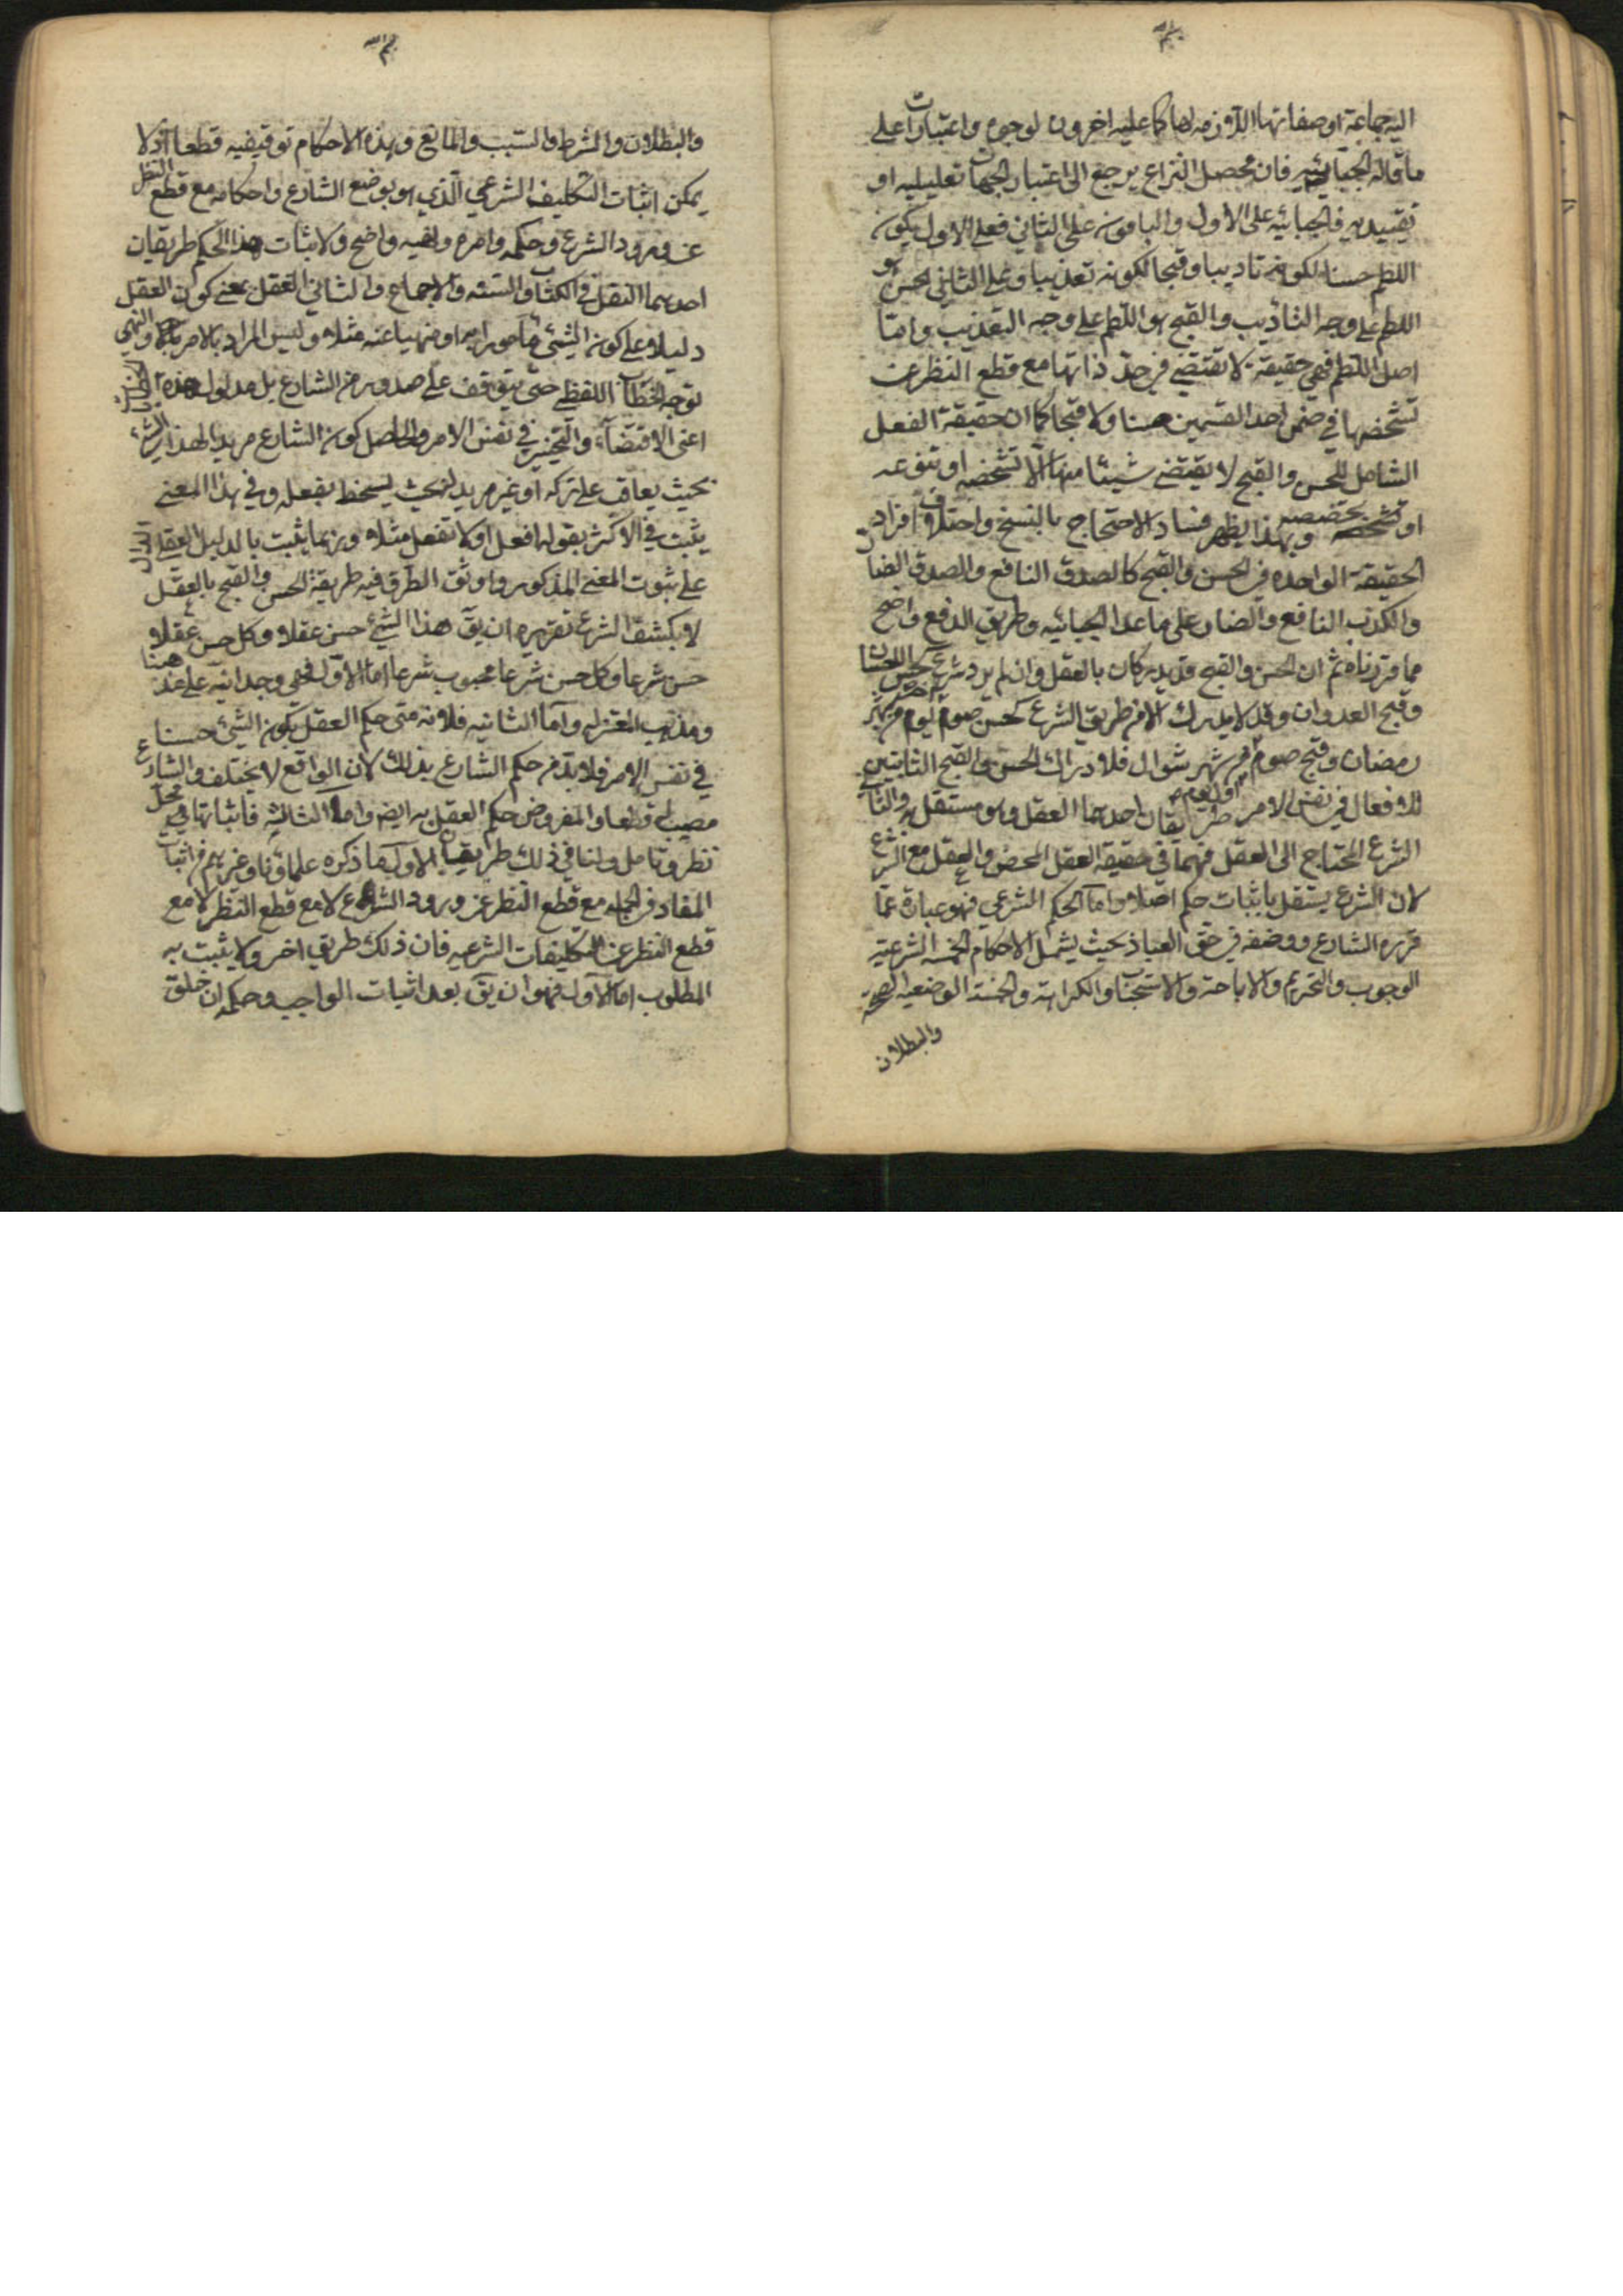 اليه جماعة او صفاتها اللازمه لها كما عليه اخرون لوجوه واعتبارات على
ما قاله الجبائيه فان محصل النزاع يرجع الى اعتبار الجهات تعليليه او
تقييديه فالجبائيه على الاول والباقون على الثاني فعلى الاول يكون
اللطم حسنا لكونه تاديبا وقبحا لكونه تعذيبا وعلى الثاني الحسن هو
اللطم على وجه التاديب والقبح هو اللطم على وجه التعذيب واما
اصل اللطم فهي حقيقة لا تقتضي في حد ذاتها مع قطع النظر عن
تشخصها في ضمن احد القسمين حسنا ولا قبحا كما ان حقيقة الفعل
الشامل للحسن والقبح لا يقتضي شيئا منها الا تشخصه او تنوعه
او تخصصه وبهذا يظهر فساد الاحتجاج بالنسخ واختلاف افراد
الحقيقة الواحده في الحسن والقبح كالصدق النافع والصدق الضار
والكذب النافع والضار على ما عدا الجبائيه وطريق الدفع واضح
مما قررناه ثم ان الحسن والقبح قد يدركان بالعقل وان لم يرد شرع كحسن الاحسان
وقبح العدوان وقد لا يدرك الا من طريق الشرع كحسن صوم اخر يوم من شهر
رمضان وقبح صوم اول يوم من شهر شوال فلادراك الحسن والقبح الثابتين
للافعال في نفس الامر طريقان احدهما العقل وهو مستقل والثاني
الشرع المحتاج الى العقل فهما في حقيقة العقل المحض والعقل مع الشرع
لان الشرع يستقل باثبات حكم اصلا واما الحكم الشرعي فهو عبارة عما
قرره الشارع ووضعه في حق العباد بحيث يشمل الاحكام الخمسه الشرعية
الوجوب والتحريم والاباحة والاستحباب والكراهة والخمسة الوضعيه الصحة
والبطلان
والبطلان والشرط والسبب والمانع وهذه الاحكام توقيفيه قطعا اذ لا
يمكن اثبات التكليف الشرعي الذي هو بوضع الشارع واحكامه مع قطع النظر
عن ورود الشرع وحكمه وامره ونهيه واضح ولاثبات هذا الحكم طريقان
احدهما النقل في الكتاب والسنه والاجماع والثاني العقل بمعنى كون العقل
دليلا على كون الشيئ مامورا به او منهيا عنه مثلا وليس المراد بالامر والنهي
توجه الخطاب اللفظي حتى يتوقف على صدوره من الشارع بل مدلول هذه
اعني الاقتضاء والتخيير في نفس الامر والحاصل كون الشارع مريدا لهذا الشئ
بحيث يعاقب على تركه او غير مريد له بحيث يسخط بفعله وفي هذا المعنى
يثبت في الاكثر بقوله افعل او لا تفعل مثلا وربما يثبت بالدليل العقلي الدال
على ثبوت المعنى المذكور واوثق الطرق فيه طريقة الحسن والقبح بالعقل
لا بكشف الشرع تقريره ان يق هذا الشيئ حسن عقلا وكل حسن عقلا
حسن شرعا وكل حسن شرعا محبوب شرعا اما الاولى فهي وجدانيه على مذهبنا
ومذهب المعتزله واما الثانيه فلانه متى حكم العقل بكون الشيئ حسنا
في نفس الامر فلا بد من حكم الشارع بذلك لان الواقع لا يختلف والشارع
مصيب له قطعا والمفروض حكم العقل به ايضا واما الثالثه فاثباتها في محل
نظر وتامل ولنا في ذلك طريقان الاول ما ذكره علماؤنا وغيرهم من اثبات
المعاد في الجمله مع قطع النظر عن ورود الشرع لا مع قطع النظر لا مع
قطع النظر عن التكليفات الشرعيه فان ذلك طريق اخر ولا يثبت به
المطلوب اما الاول فهو ان يق بعد اثبات الواجب وحكمه ان خلق